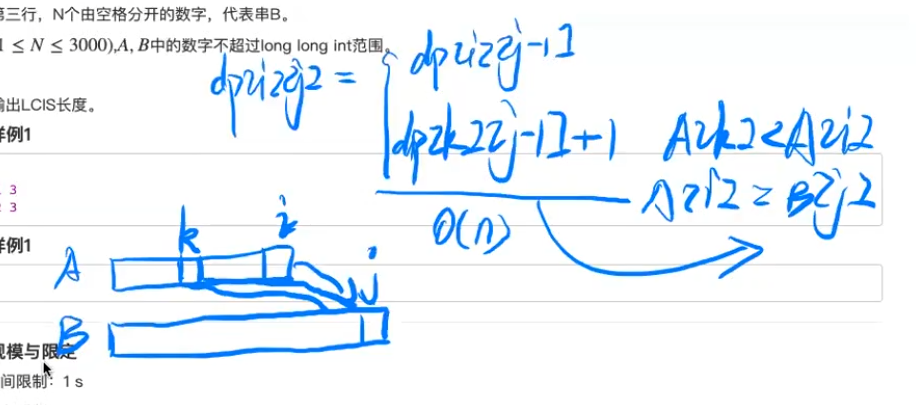 第三行，N个由空格分开的数字，代表串B。
1 ≤ N ≤ 3000),A, B中的数字不超过long long int范围。
dp[i][j] = { dp[i][j-1]
dp[k][j-1]+1 A[k]<A[i]
A[i] = B[j]
输出LCIS长度。
样例1
O(n)
3
3
k i
样例1
A
j
B
规模与限定
时间限制：1 s